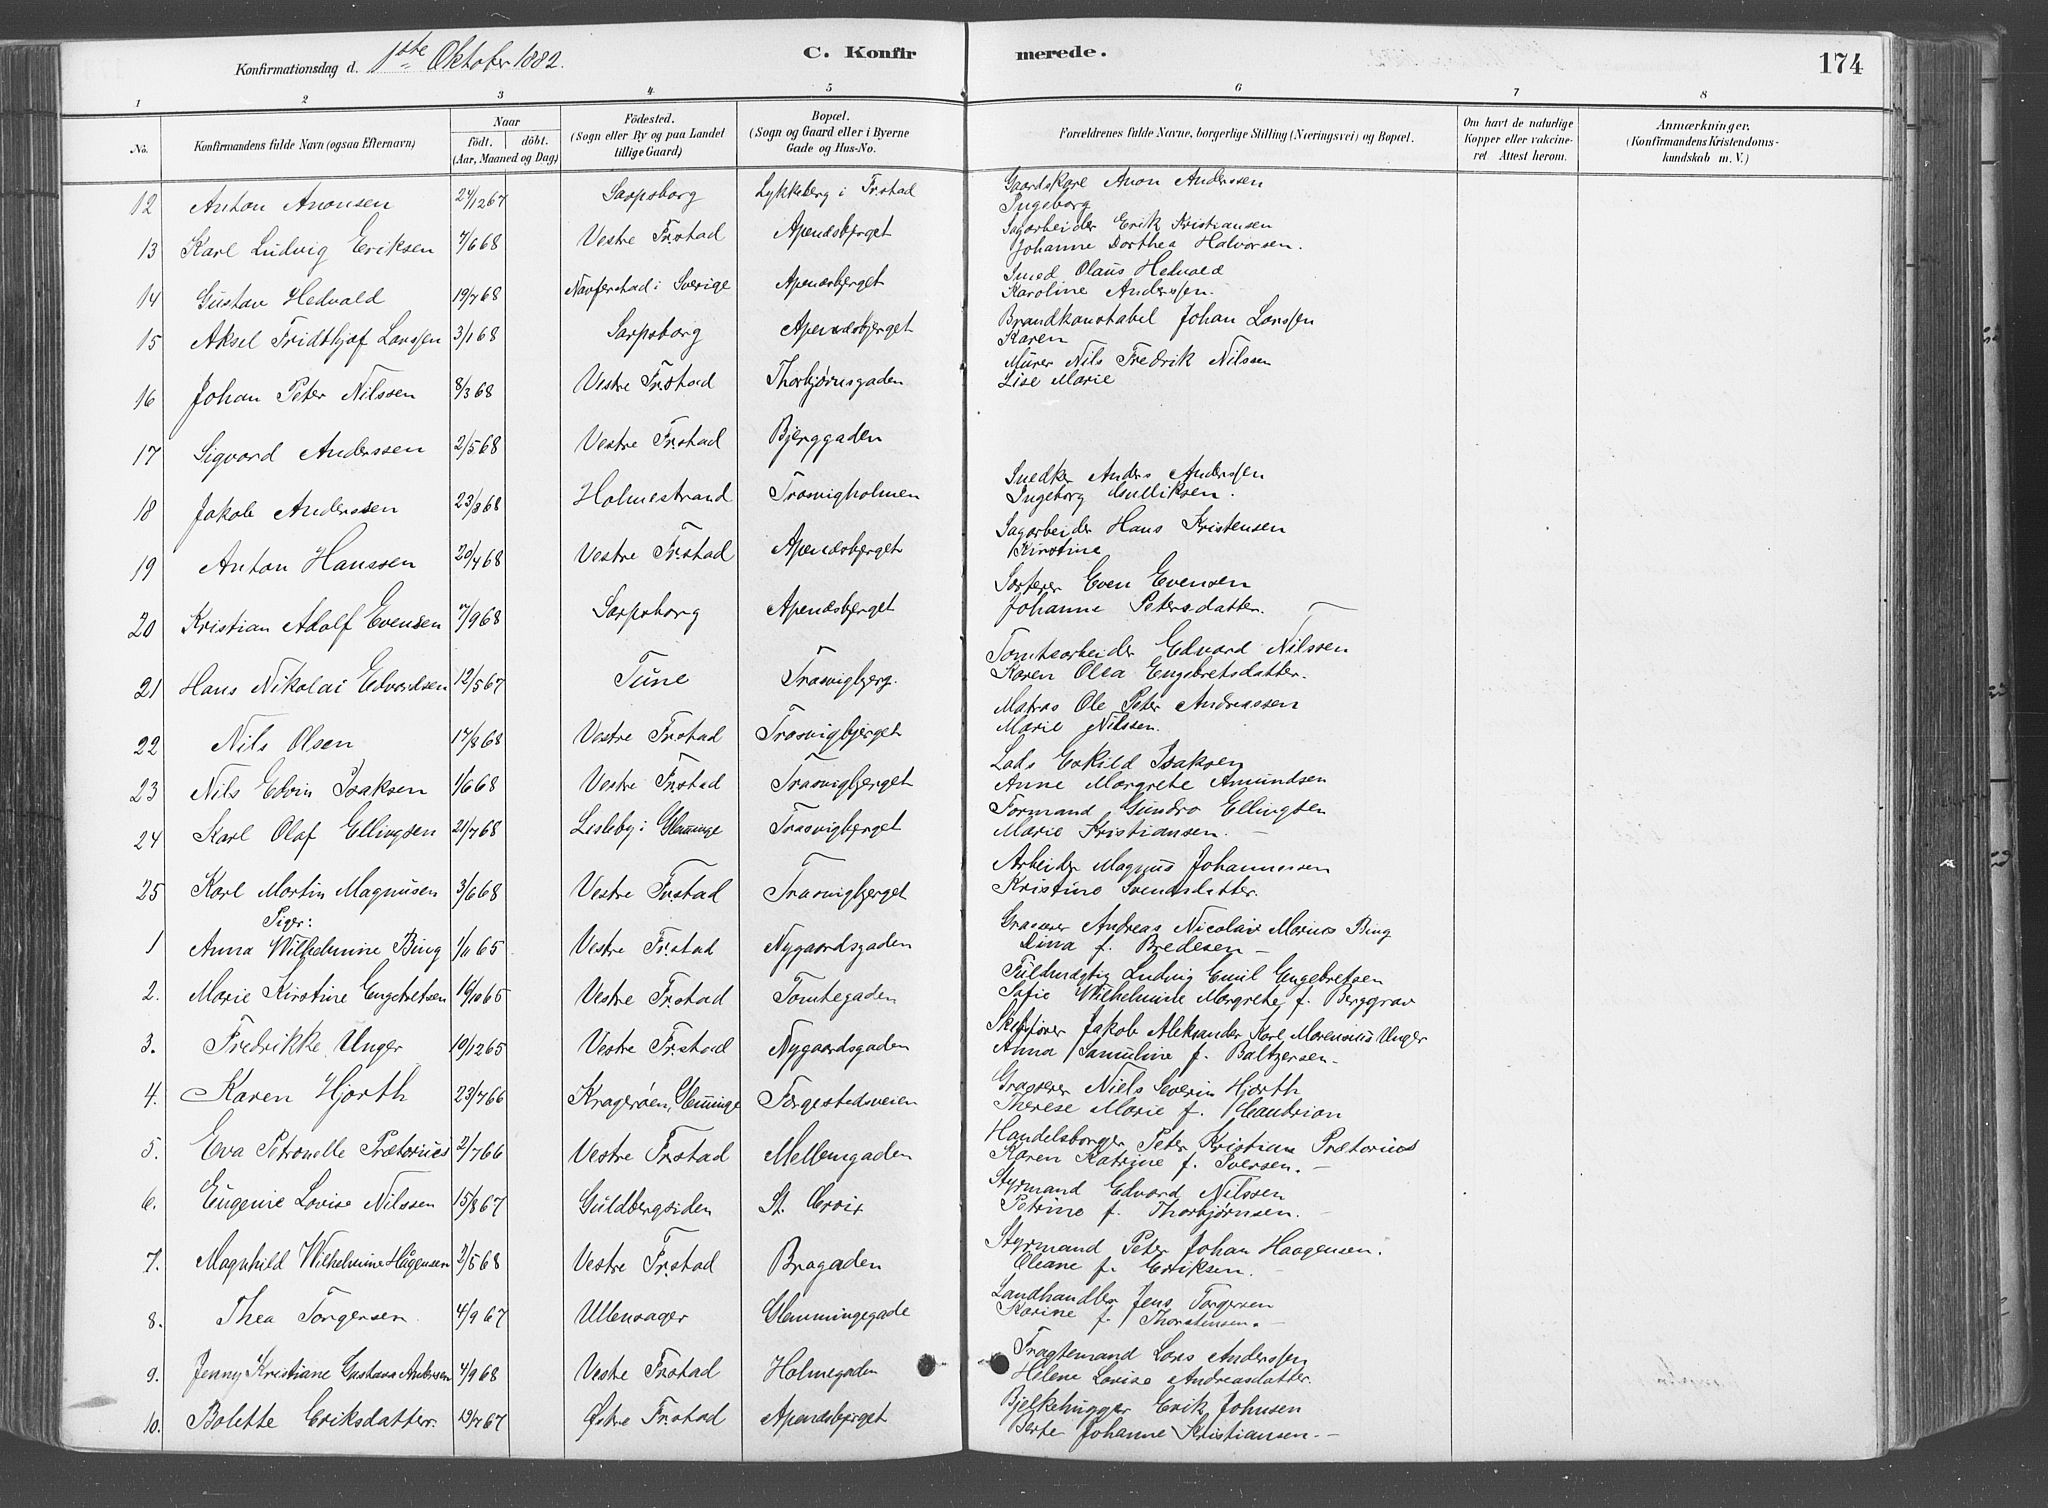 Konfirmationsdag d. 1ste Oktober 1882.
C. Konfirmerede.
174
1 2 3 4 5 6 7 8
No.
Konfirmandens fulde Navn (ogsaa Efternavn)
Naar
födt. döbt.
(Aar, Maaned og Dag)
Födested.
(Sogn eller By og paa Landet
tillige Gaard)
Bopæl.
(Sogn og Gaard eller i Byerne
Gade og Hus-No.
Forældrenes fulde Navne, borgerlige Stilling (Næringsvei) og Bopæl.
Om havt de naturlige
Kopper eller vakcine-
ret Attest herom.
Anmærkninger.
(Konfirmandens Kristendoms-
kundskab m. V.)
12 Anton Anonsen 24/12 67 Sarpsborg Lykkeberg i Fr.stad Gaardskarl Anon Anderssen
Ingeborg
13 Karl Ludvig Eriksen 7/6 68 Vestre Fr.stad Apenæsbjerget Sagarbeider Erik Kristiansen
Johanne Dorthea Halvorsen.
14 Gustav Hedvald 19/7 68 Navferstad i Sverige Apenæsbjerget Smed Olaus Hedvald
Karoline Anderssen.
15 Aksel Fridthjof Larssen 3/1 68 Sarpsborg Apenæsbjerget Brandkonstabel Johan Larssen
Karen
16 Johan Peter Nilssen 8/3 68 Vestre Fr.stad Thorbjørnsgaden Murer Nils Fredrik Nilssen
Lise Marie
17 Sigvard Anderssen 2/5 68 Vestre Fr.stad Bjerggaden
18 Jakob Anderssen 23/3 68 Holmestrand Trosvigholmen Snedker Anders Anderssen
Ingeborg Gulliksen.
19 Anton Hanssen 20/4 68 Vestre Fr.stad Apenæsbjerget Sagarbeider Hans Kristensen
Kirstine
20 Kristian Adolf Evensen 7/9 68 Sarpsborg Apenæsbjerget Sorterer Even Evensen
Johanne Petersdatter.
21 Hans Nikolai Edvardsen 12/5 67 Tune Trosvigbjerg. Tomtearbeider Edvard Nilssen
Karen Olea Engebretsdatter.
22 Nils Olsen 17/8 68 Vestre Fr.stad Trosvigbjerget Matros Ole Peter Andreassen
Marie Nilssen.
23 Nils Edvin Isaksen 1/6 68 Vestre Fr.stad Trosvigbjerget Lods Eskild Isaksen
Anne Margrete Amundsen
24 Karl Olaf Ellingsen 21/7 68 Lisleby i Glemminge Trosvigbjerget Formand Gundro Ellingsen
Marie Kristiansen. —
25 Karl Martin Magnusen 3/6 68 Vestre Fr.stad Trosvigbjerget Arbeider Magnus Johannessen
Kristine Svensdatter.
Piger:
1 Anna Wilhelmine Bing 1/11 65 Vestre Fr.stad Nygaardsgaden Grasserer Andreas Nicolai Marius Bing
Dina f. Bredesen —
2. Marie Kirstine Engebretsen 19/10 65 Vestre Fr.stad Tomtegaden Fuldmægtig Ludvig Emil Engebretsen
Sofie Wilhelmine Margrete f. Berggrav
3. Fredrikke Unger 10/12 65 Vestre Fr.stad Nygaardsgaden Skibsfører Jakob Aleksander Karl Morensius Unger
Anna Samuline f. Baltzersen —
4. Karen Hjorth 23/7 66 Kragerøen, Glemminge Færgestedsveien Grasserer Niels Severin Hjorth
Therese Marie f.
5. Eva Petronelle Prætorius 2/7 66 Vestre Fr.stad Mellemgaden Handelsborger Peter Kristian Prætorius
Karen Katrine f. Iversen. —
6. Eugenie Lovise Nilssen 15/8 67 Guldbergsiden St. Croix Styrmand Edvard Nilssen
Petrine f. Thorbjørnsen. —
7. Magnhild Wilhelmine Hågensen 2/5 68 Vestre Fr.stad Bragaden Styrmand Peter Johan Haagensen.
Oleane f. Eriksen. —
8. Thea Torgersen 4/9 67 Ullensager Glemmingegade Landhandler Jens Torgersen
Karine f. Thorstensen. —
9. Jenny Kristiane Gustava Anderssen 4/9 68 Vestre Fr.stad Holmegaden Fragtemand Lars Anderssen
Helene Lovise Andreasdatter.
10. Bolette Eriksdatter. 19/7 67 Østre Fr.stad Apenæsbjerget Bjelkehugger Erik Johnsen
Berte Johanne Kristiansen. —